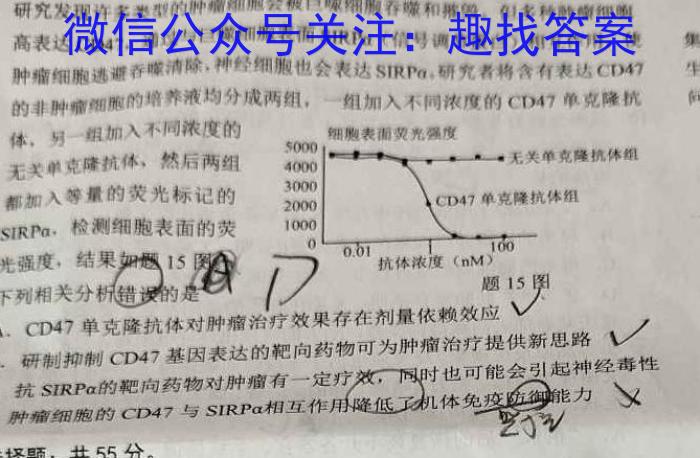 研究发现许多类型的肿瘤细胞会被巨噬细胞吞噬和
微信公众号关注：趣找答案
高表达
肿瘤细胞逃避吞噬清除,神经细胞也会表达SIRPα。研究者将含有表达CD47
的非肿瘤细胞的培养液均分成两组，一组加入不同浓度的CD47单克隆抗
体，另一组加入不同浓度的
无关单克隆抗体，然后两组
都加入等量的荧光标记的
SIRPα，检测细胞表面的荧
光强度，结果如题15图
下列相关分析错误的是
细胞表面荧光强度
5000
4000
3000
2000
1000
0
无关单克隆抗体组
CD47单克隆抗体组
0.01
1
100
抗体浓度（nM）
题15图
D
CD47单克隆抗体对肿瘤治疗效果存在剂量依赖效应
研制抑制CD47基因表达的靶向药物可为肿瘤治疗提供新思路
抗SIRPα的靶向药物对肿瘤有一定疗效，同时也可能会引起神经毒性
肿瘤细胞的CD47与SIRPα相互作用降低了机体免疫防御能力
择题：共55分。
集
生